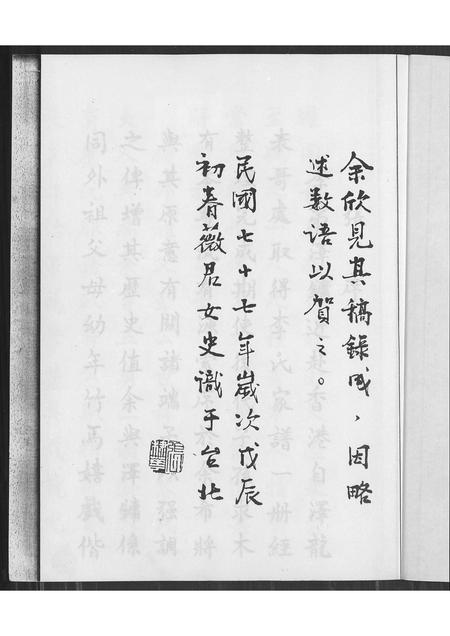 余欣見其稿錄成，因略
述数语以賀之。
民國七十七年歲次戊辰
初春薇君女史識于台北